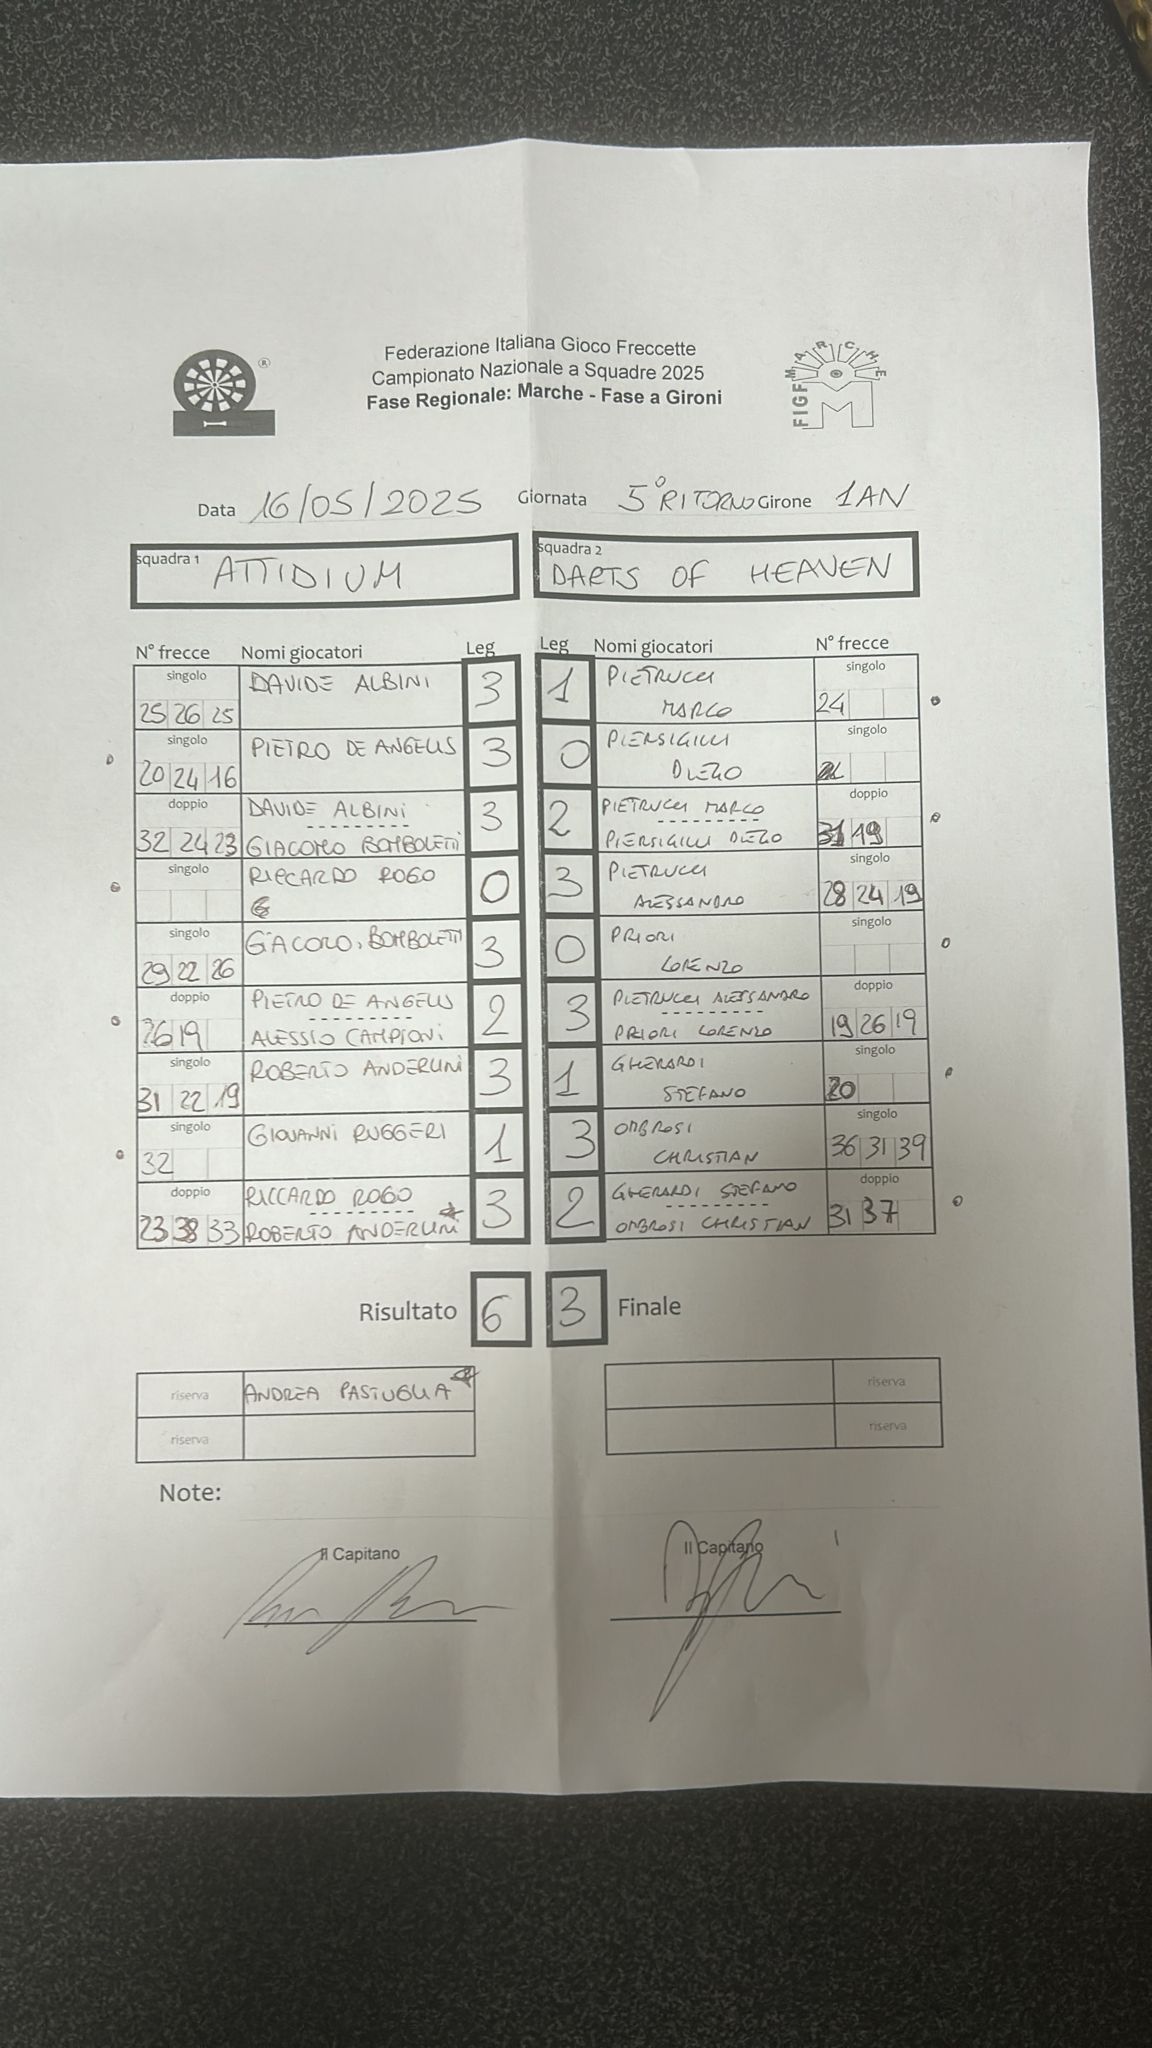 Federazione Italiana Gioco Freccette
Campionato Nazionale a Squadre 2025
Fase Regionale: Marche - Fase a Gironi
®
FIGF MARCHE
Data 16/05/2025 Giornata 5° RITORNO Girone 1AN
squadra 1 ATTIDIUM squadra 2 DARTS OF HEAVEN
N° frecce Nomi giocatori Leg Leg Nomi giocatori N° frecce
singolo DAVIDE ALBINI 3 1 PIETRUCCI singolo
25 26 25 MARCO 24
singolo PIETRO DE ANGELIS 3 0 PIERSIGILLI singolo
20 24 16 DIEGO
doppio DAVIDE ALBINI 3 2 PIETRUCCI MARCO doppio
32 24 23 GIACOMO BOMBOLETTI PIERSIGILLI DIEGO 31 19
singolo RICCARDO ROGO 0 3 PIETRUCCI singolo
ALESSANDRO 28 24 19
singolo GIACOMO BOMBOLETTI 3 0 PRIORI singolo
29 22 26 LORENZO
doppio PIETRO DE ANGELIS 2 3 PIETRUCCI ALESSANDRO doppio
26 19 ALESSIO CAMPIONI PRIORI LORENZO 19 26 19
singolo ROBERTO ANDERLINI 3 1 GHERARDI singolo
31 22 19 STEFANO 20
singolo GIOVANNI RUGGERI 1 3 OMBROSI singolo
32 CHRISTIAN 36 31 39
doppio RICCARDO ROGO 3 2 GHERARDI STEFANO doppio
23 38 33 ROBERTO ANDERLINI OMBROSI CHRISTIAN 31 37
Risultato 6 3 Finale
riserva ANDREA PASTUGLIA riserva
riserva riserva
Note:
Il Capitano Il Capitano